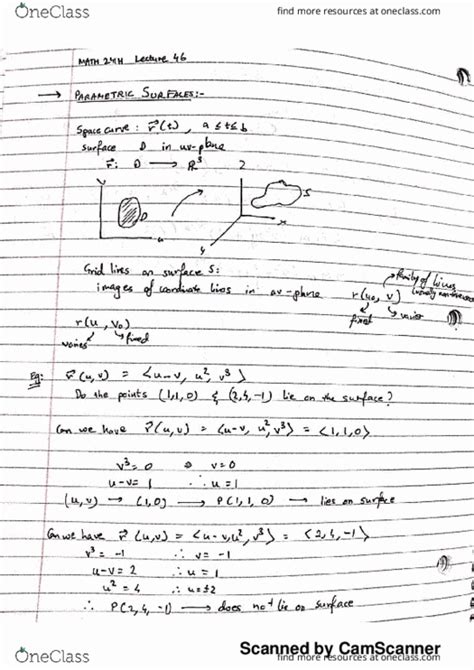 OneClass
find more resources at oneclass.com
MATH 241H Lecture 46
→ PARAMETRIC SURFACES:-
Space curve : r⃗(t) , a ≤ t ≤ b
surface D in uv-plane
r⃗ : D → R³
v
D
u
z
S
x
y
Grid lines on surface S:
images of coordinate lines in uv-plane
r(u₀, v) → family of lines
fixed → varies
r(u, v₀)
varies → fixed
Eg: r⃗(u,v) = ⟨u-v, u², v³⟩
Do the points (1,1,0) & (2,4,-1) lie on the surface?
Can we have r⃗(u,v) = ⟨u-v, u², v³⟩ = ⟨1,1,0⟩
v³ = 0 v = 0
u-v = 1 ∴ u = 1
(u,v) → (1,0) → P(1,1,0) → lies on surface
Can we have r⃗(u,v) = ⟨u-v, u², v³⟩ = ⟨2,4,-1⟩
v³ = -1 ∴ v = -1
u-v = 2 ∴ u = 1
u² = 4 ∴ u = ±2
∴ P(2,4,-1) → does not lie on surface
Scanned by CamScanner
OneClass
find more resources at oneclass.com